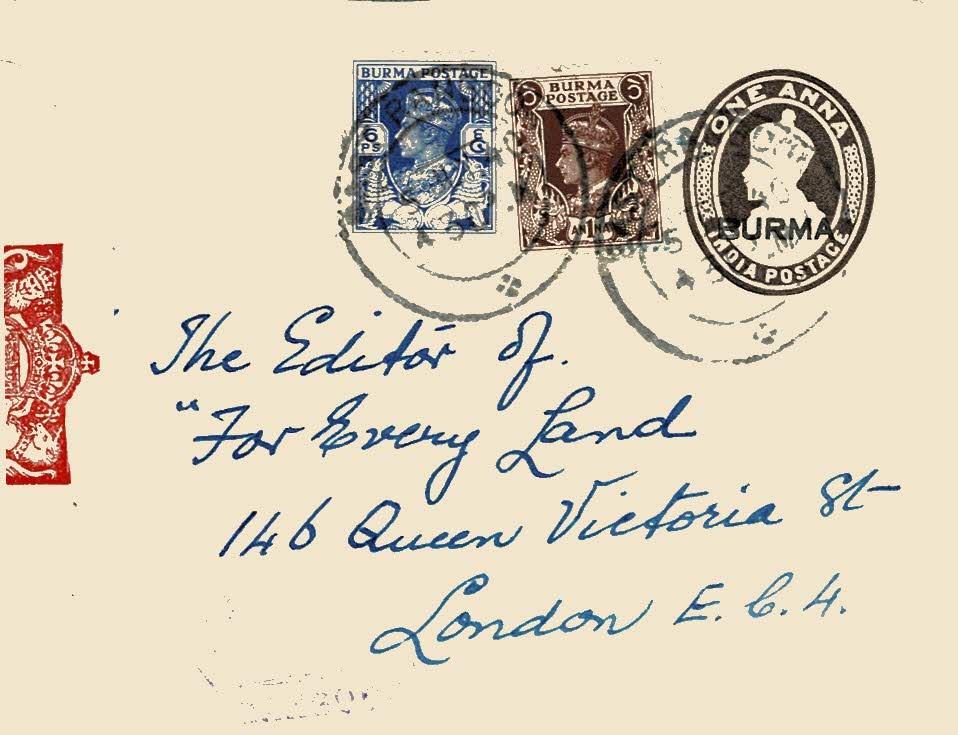 BURMA POSTAGE
6 PS
BURMA
POSTAGE
AN1NA
ONE ANNA
BURMA
INDIA POSTAGE
The Editor of.
"For Every Land
146 Queen Victoria St
London E.C.4.